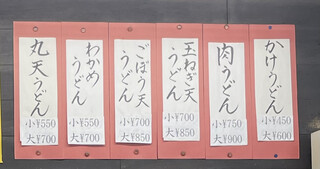 かけうどん
小¥450
大¥600
肉うどん
小¥750
大¥900
玉ねぎ天
うどん
小¥700
大¥850
ごぼう天
うどん
小¥700
大¥850
わかめ
うどん
小¥550
大¥700
丸天うどん
小¥550
大¥700